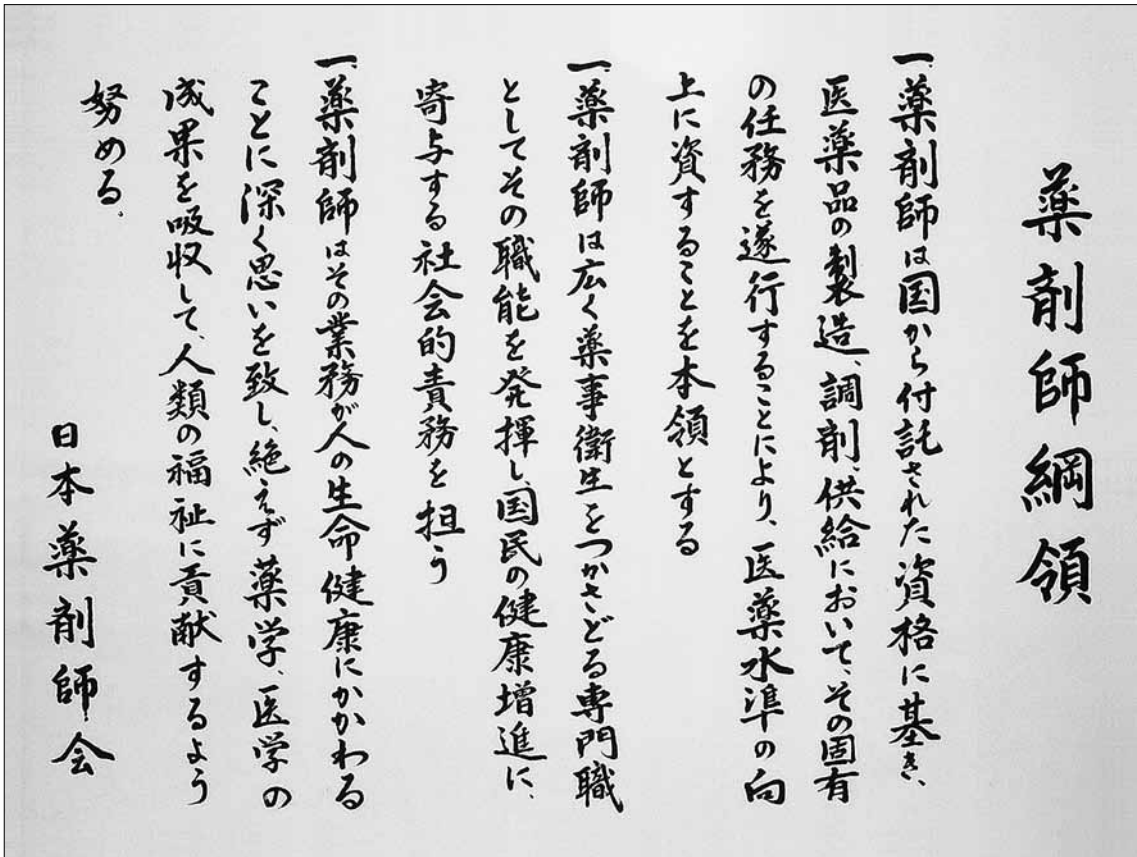 薬剤師綱領
一、薬剤師は国から付託された資格に基き、
医薬品の製造、調剤、供給において、その固有
の任務を遂行することにより、医薬水準の向
上に資することを本領とする
一、薬剤師は広く薬事衛生をつかさどる専門職
としてその職能を発揮し、国民の健康増進に、
寄与する社会的責務を担う
一、薬剤師はその業務が人の生命健康にかかわる
ことに深く思いを致し、絶えず薬学、医学の
成果を吸収して、人類の福祉に貢献するよう
努める。
日本薬剤師会